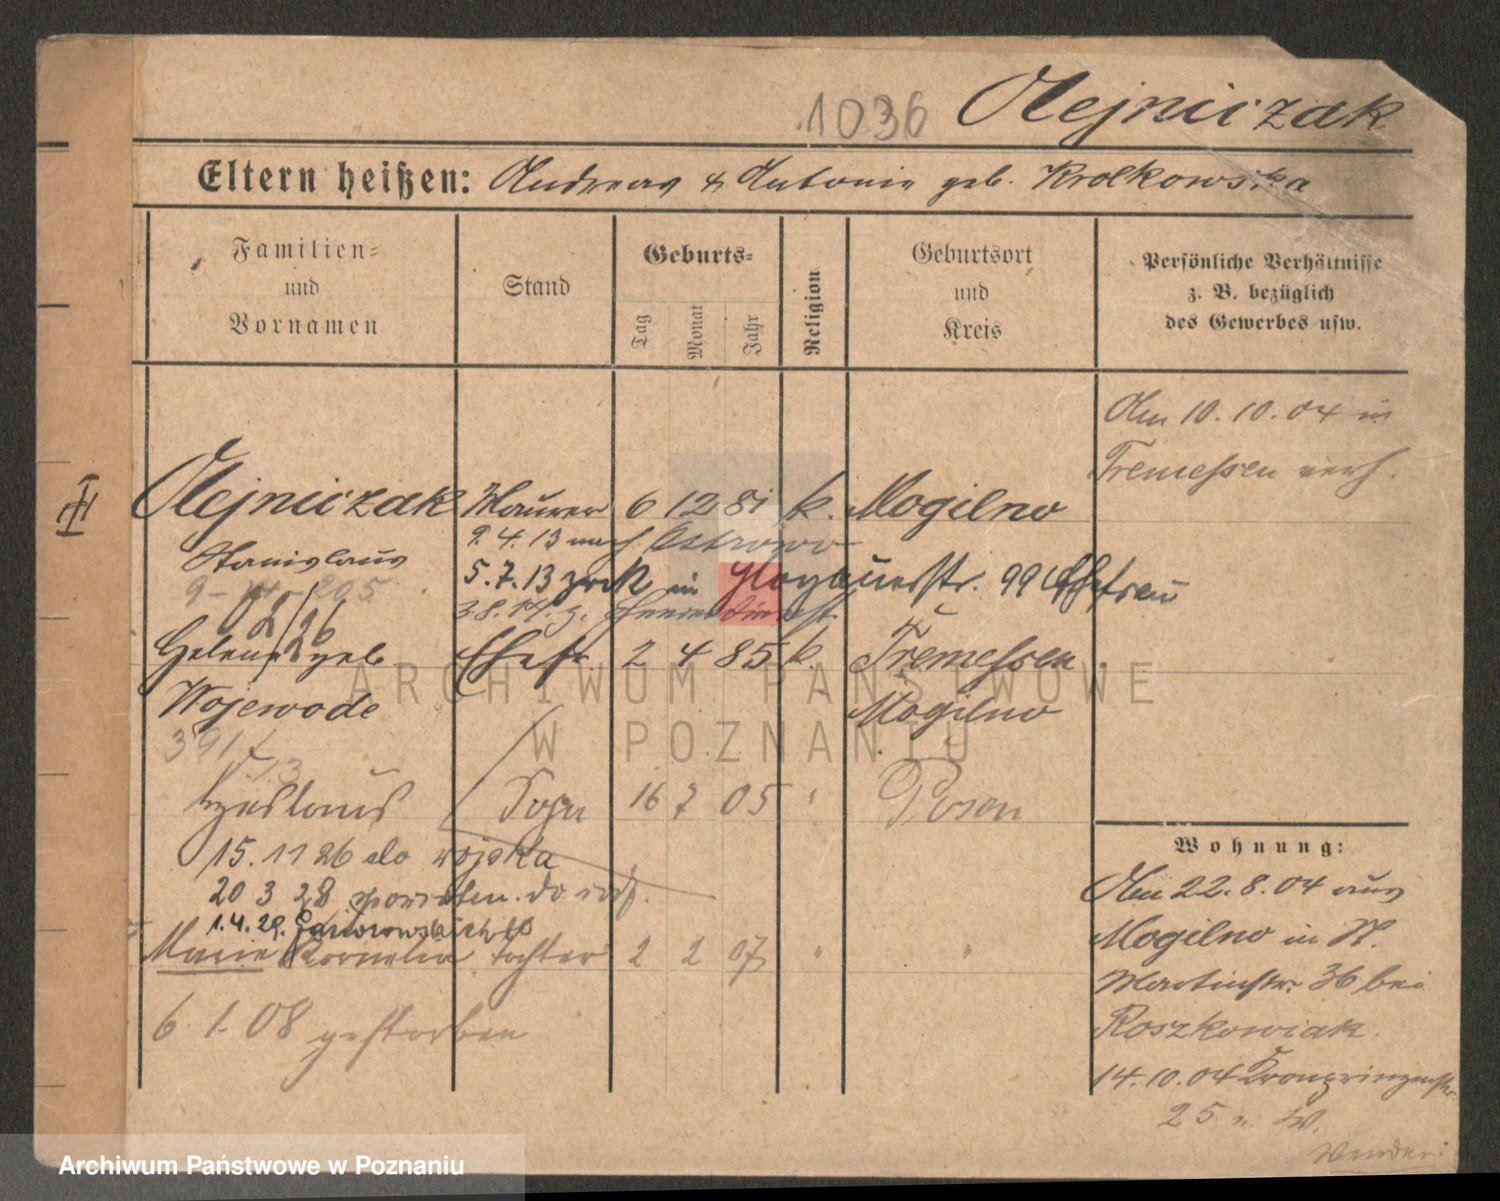 1036 Olejniczak
Eltern heißen: Andreas & Antonie geb. Krolkowska
Familien=
und
Vornamen
Stand
Geburts=
Tag
Monat
Jahr
Religion
Geburtsort
und
Kreis
Persönliche Verhältnisse
z. B. bezüglich
des Gewerbes usw.
Am 10.10.04 in
Tremessen verh.
II
Olejniczak Maurer 6 12 81 k. Mogilno
9.4.13 nach Ostrowo
Stanislaus
5.7.13 zrck in Glogauerstr. 99 Ehefrau
3.8.14. z.
Helena geb. Ehefr 2 4 85 k. Tremessen
Wojewode Mogilno
Czeslaus Sohn 16 7 05 " Posen
15.11 26 do wojska
20 3 28 do
1.4.29.
Marie Kornelia Tochter 2 2 07 " "
6. 1. 08 gestorben
Wohnung:
Am 22.8.04 aus
Mogilno in St.
Martinstr. 36 bei
Roszkowiak.
14.10.04 Kronprinzenstr.
25
Wenden!
ARCHIWUM PAŃSTWOWE
W POZNANIU
Archiwum Państwowe w Poznaniu